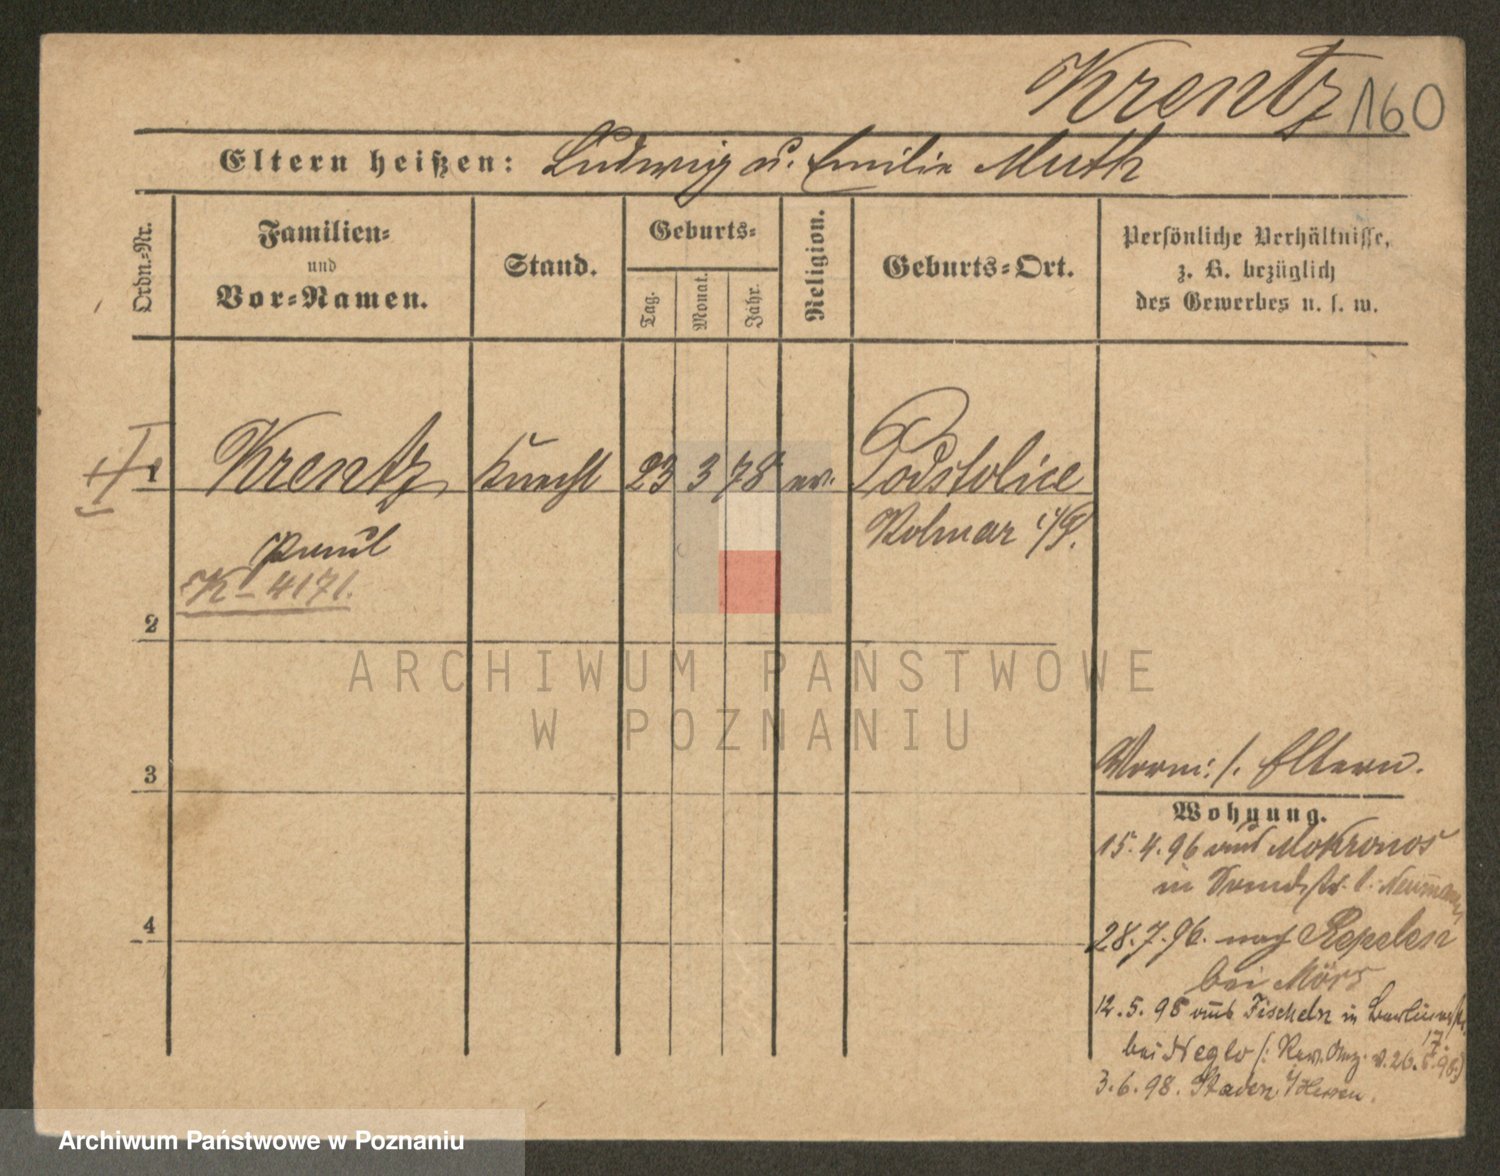 Krentz 160
Eltern heißen: Ludwig u. Emilie Muth
Ordn.-Nr.
Familien-
und
Vor-Namen.
Stand.
Geburts-
Tag.
Monat.
Jahr.
Religion.
Geburts-Ort.
Persönliche Verhältnisse,
z. B. bezüglich
des Gewerbes u. s. w.
1 Krentz Knecht 23 3 78 ev. Podstolice
Paul Kolmar i/P.
K-4171.
2
3
4
ARCHIWUM PAŃSTWOWE
W POZNANIU
Vorm: s. Eltern.
Wohnung.
15.4.96 aus Mokronos
in
28.7.96. nach Repelen
bei Mörs
12.5.98 aus Fischeln in
bei Neglo
3.6.98. Staden i/Hessen.
Archiwum Państwowe w Poznaniu